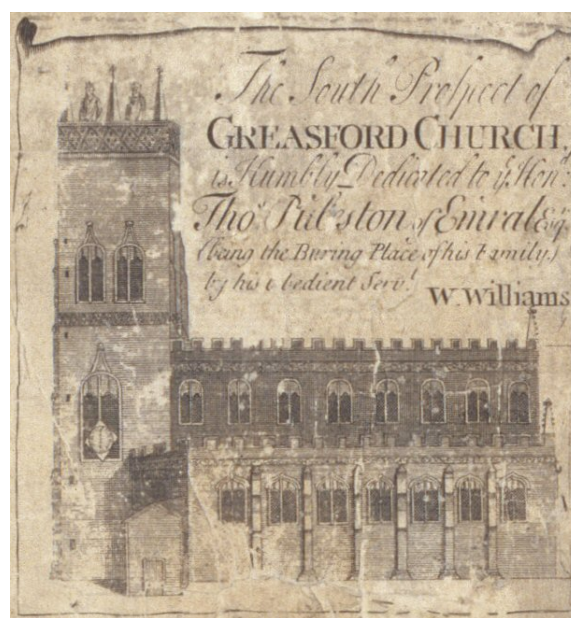 The South Prospect of
GREASFORD CHURCH,
is Humbly Dedicated to yͤ Honᵈ:
Thoˢ Pulᵉston of Emral Esqʳ
(being the Buring Place of his Family)
by his obedient Servᵗ
W. Williams